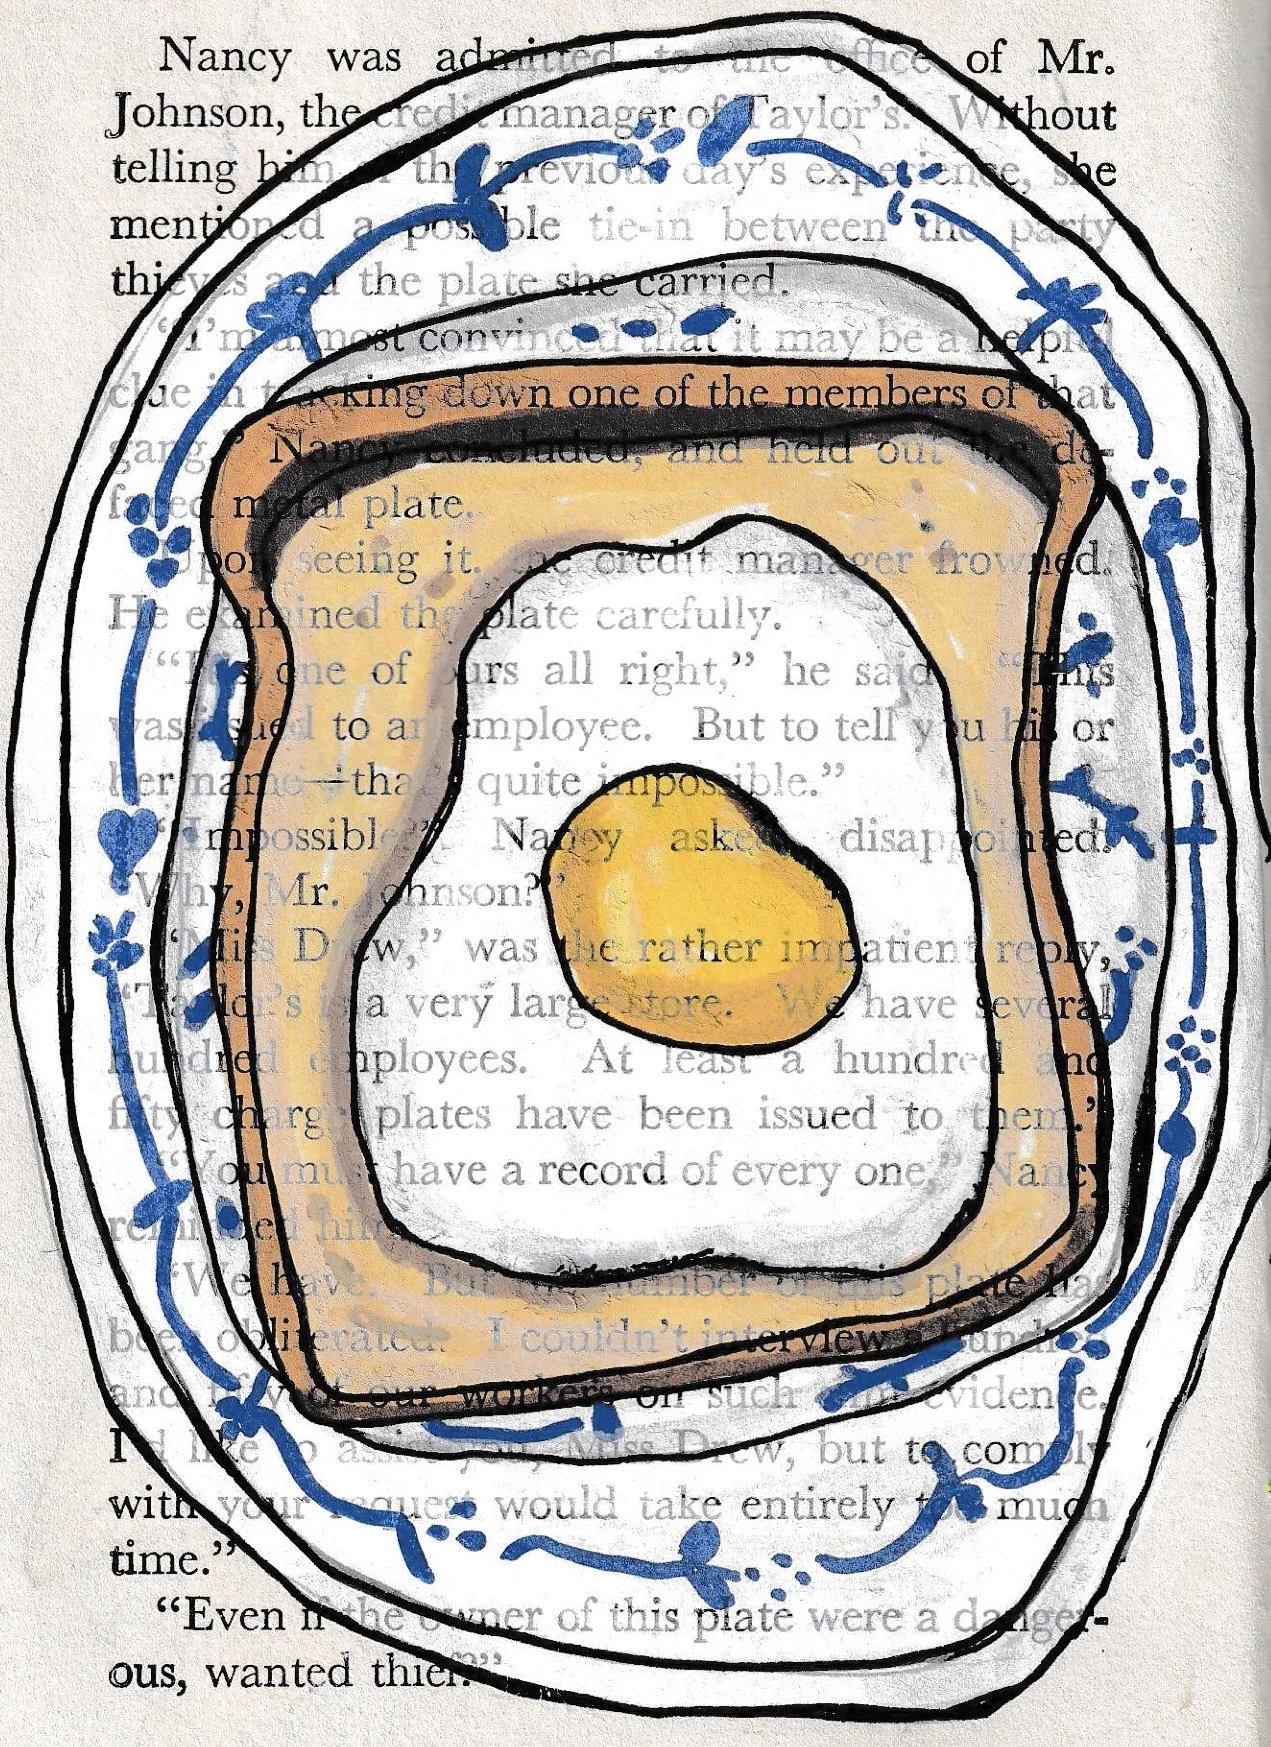 Nancy was admitted to the office of Mr.
Johnson, the credit manager of Taylor's. Without
telling him of the previous day's experience, she
mentioned a possible tie-in between the party
thieves and the plate she carried.
"I'm almost convinced that it may be a helpful
clue in tracking down one of the members of that
gang," Nancy concluded, and held out the de-
faced metal plate.
Upon seeing it, the credit manager frowned.
He examined the plate carefully.
"It's one of ours all right," he said. "This
was issued to an employee. But to tell you his or
her name—that's quite impossible."
"Impossible?" Nancy asked, disappointed.
"Why, Mr. Johnson?"
"Miss Drew," was the rather impatient reply,
"Taylor's is a very large store. We have several
hundred employees. At least a hundred and
fifty charge plates have been issued to them."
"You must have a record of every one," Nancy
reminded him.
"We have. But the number of this plate has
been obliterated. I couldn't interview a hundred
and fifty of our workers on such slim evidence.
I'd like to assist you, Miss Drew, but to comply
with your request would take entirely too much
time."
"Even if the owner of this plate were a danger-
ous, wanted thief?"